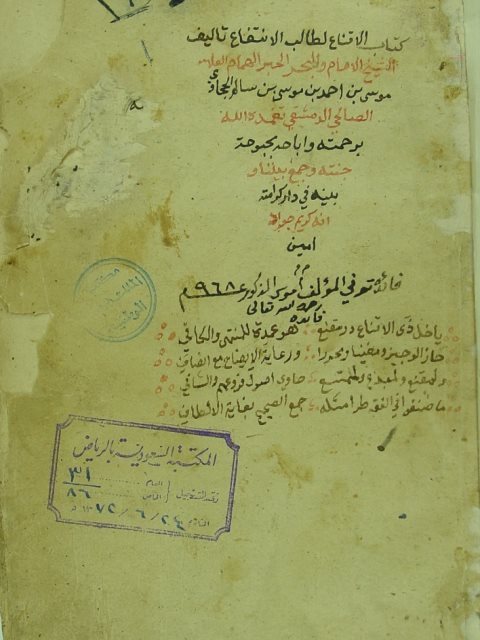 كتاب الاقناع لطالب الانتفاع تاليف
الشيخ الامام والبحر الحبر الهمام العلامه
موسى بن احمد بن موسى بن سالم الحجاوي
الصالحي الدمشقي تغمده الله
برحمته واباحه بحبوحة
جنته وجمع بيننا و
بينه في دار كرامته
انه كريم جواد
امين
فائدة توفي المؤلف موسى المذكور ٩٦٨ م
رحمه الله تعالى
فائده
يا خل ذي الاقناع در مقنع هو عدة للمنتهى والكافي
حاز الوجيز ومغنيا ومحررا ورعاية الايضاح مع انصاف
ولمقنع ولمبدع ولممتع حاوى اصول فروعهم والشافي
ما صنفوا في الفقه طرا مثله جمع الصحيح بغاية الالطاف
المكتبة السعودية بالرياض
رقم التسجيل العام ٣١
الخاص ٨٦
التاريخ ٢٤ / ٦ / ١٣٧٢ ه